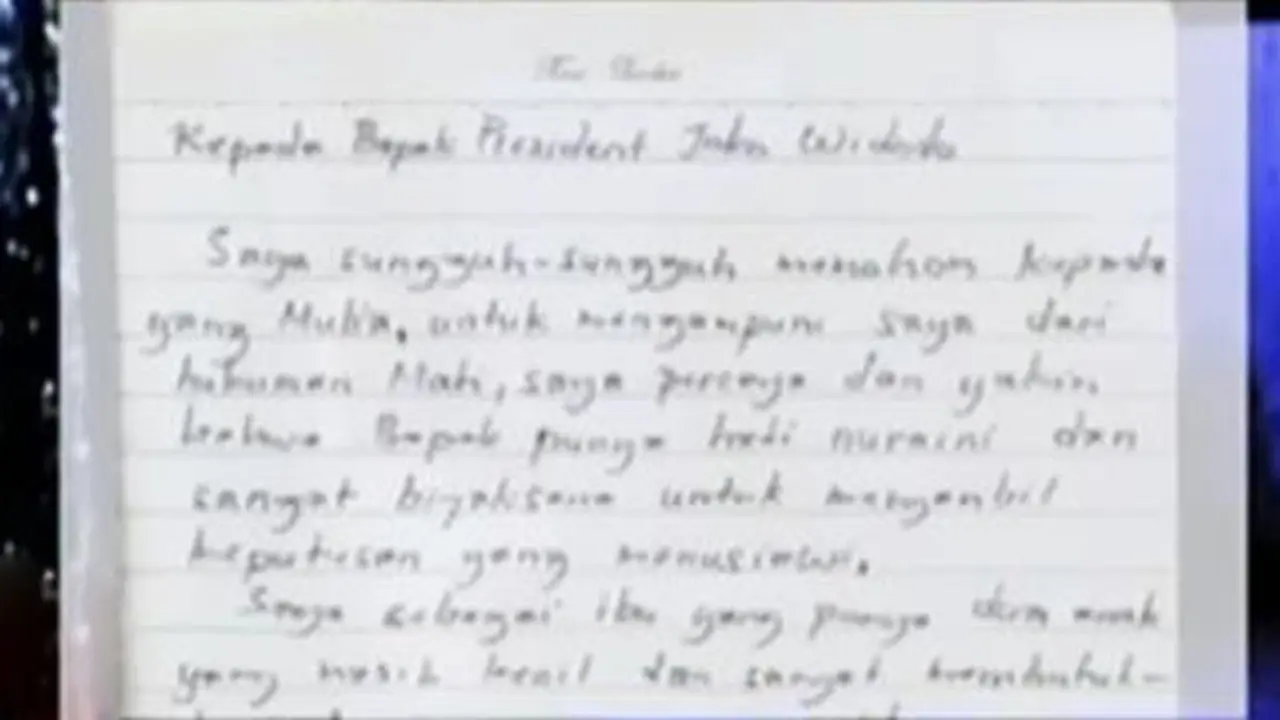 Kepada Bapak President Joko Widodo
Saya sungguh-sungguh memohon kepada
yang Mulia, untuk mengampuni saya dari
hukuman Mati, saya percaya dan yakin
bahwa Bapak punya hati nuraini dan
sangat biyaksana untuk mengambil
keputusan yang manusiawi.
Saya sebagai ibu yang punya dua anak
yang masih kecil dan sangat membutuh-